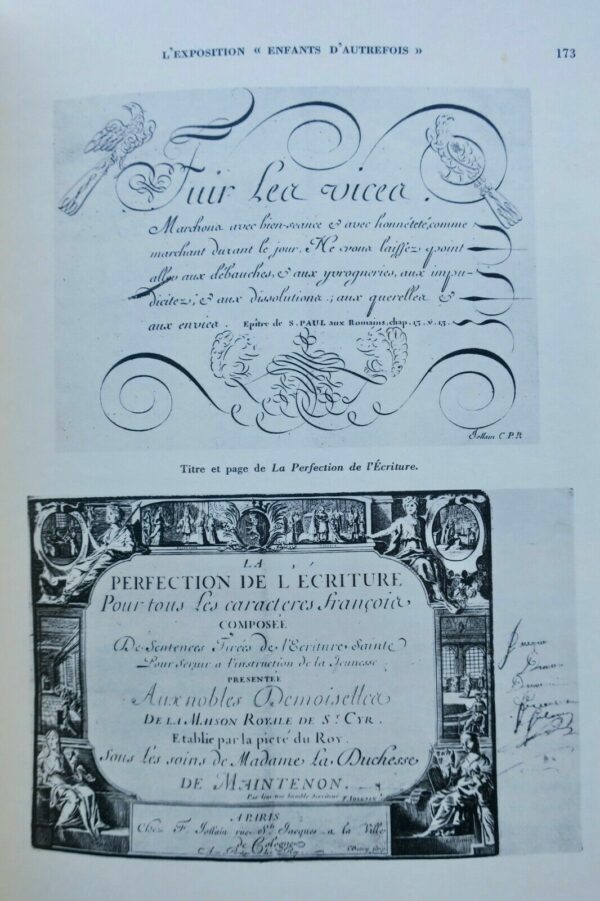 L'EXPOSITION « ENFANTS D'AUTREFOIS »
173
Fuir les vices.
Marchons avec bien-seance & avec honnêteté, comme
marchant durant le jour. Ne vous laissez point
aller aux débauches, & aux yvrogneries, aux impu-
dicitez; & aux dissolutions; aux querelles &
aux envies. Epître de S. PAUL aux Romains, chap. 13. v. 13.
Jollain C.P.R.
Titre et page de La Perfection de l'Écriture.
LA
PERFECTION DE L ECRITURE
Pour tous les caracteres François
COMPOSÉE
De Sentences Tirées de l'Ecriture Sainte
Pour Servir a l'instruction de la Jeunesse
PRESENTEE
Aux nobles Demoiselles
DE LA MAISON ROYALE DE St CYR.
Etablie par la pieté du Roy.
Sous les soins de Madame La Duchesse
DE MAINTENON.
Par F. JOLLAIN
A PARIS
Chez F. Jollain rue St Jacques a la Ville
de Cologne